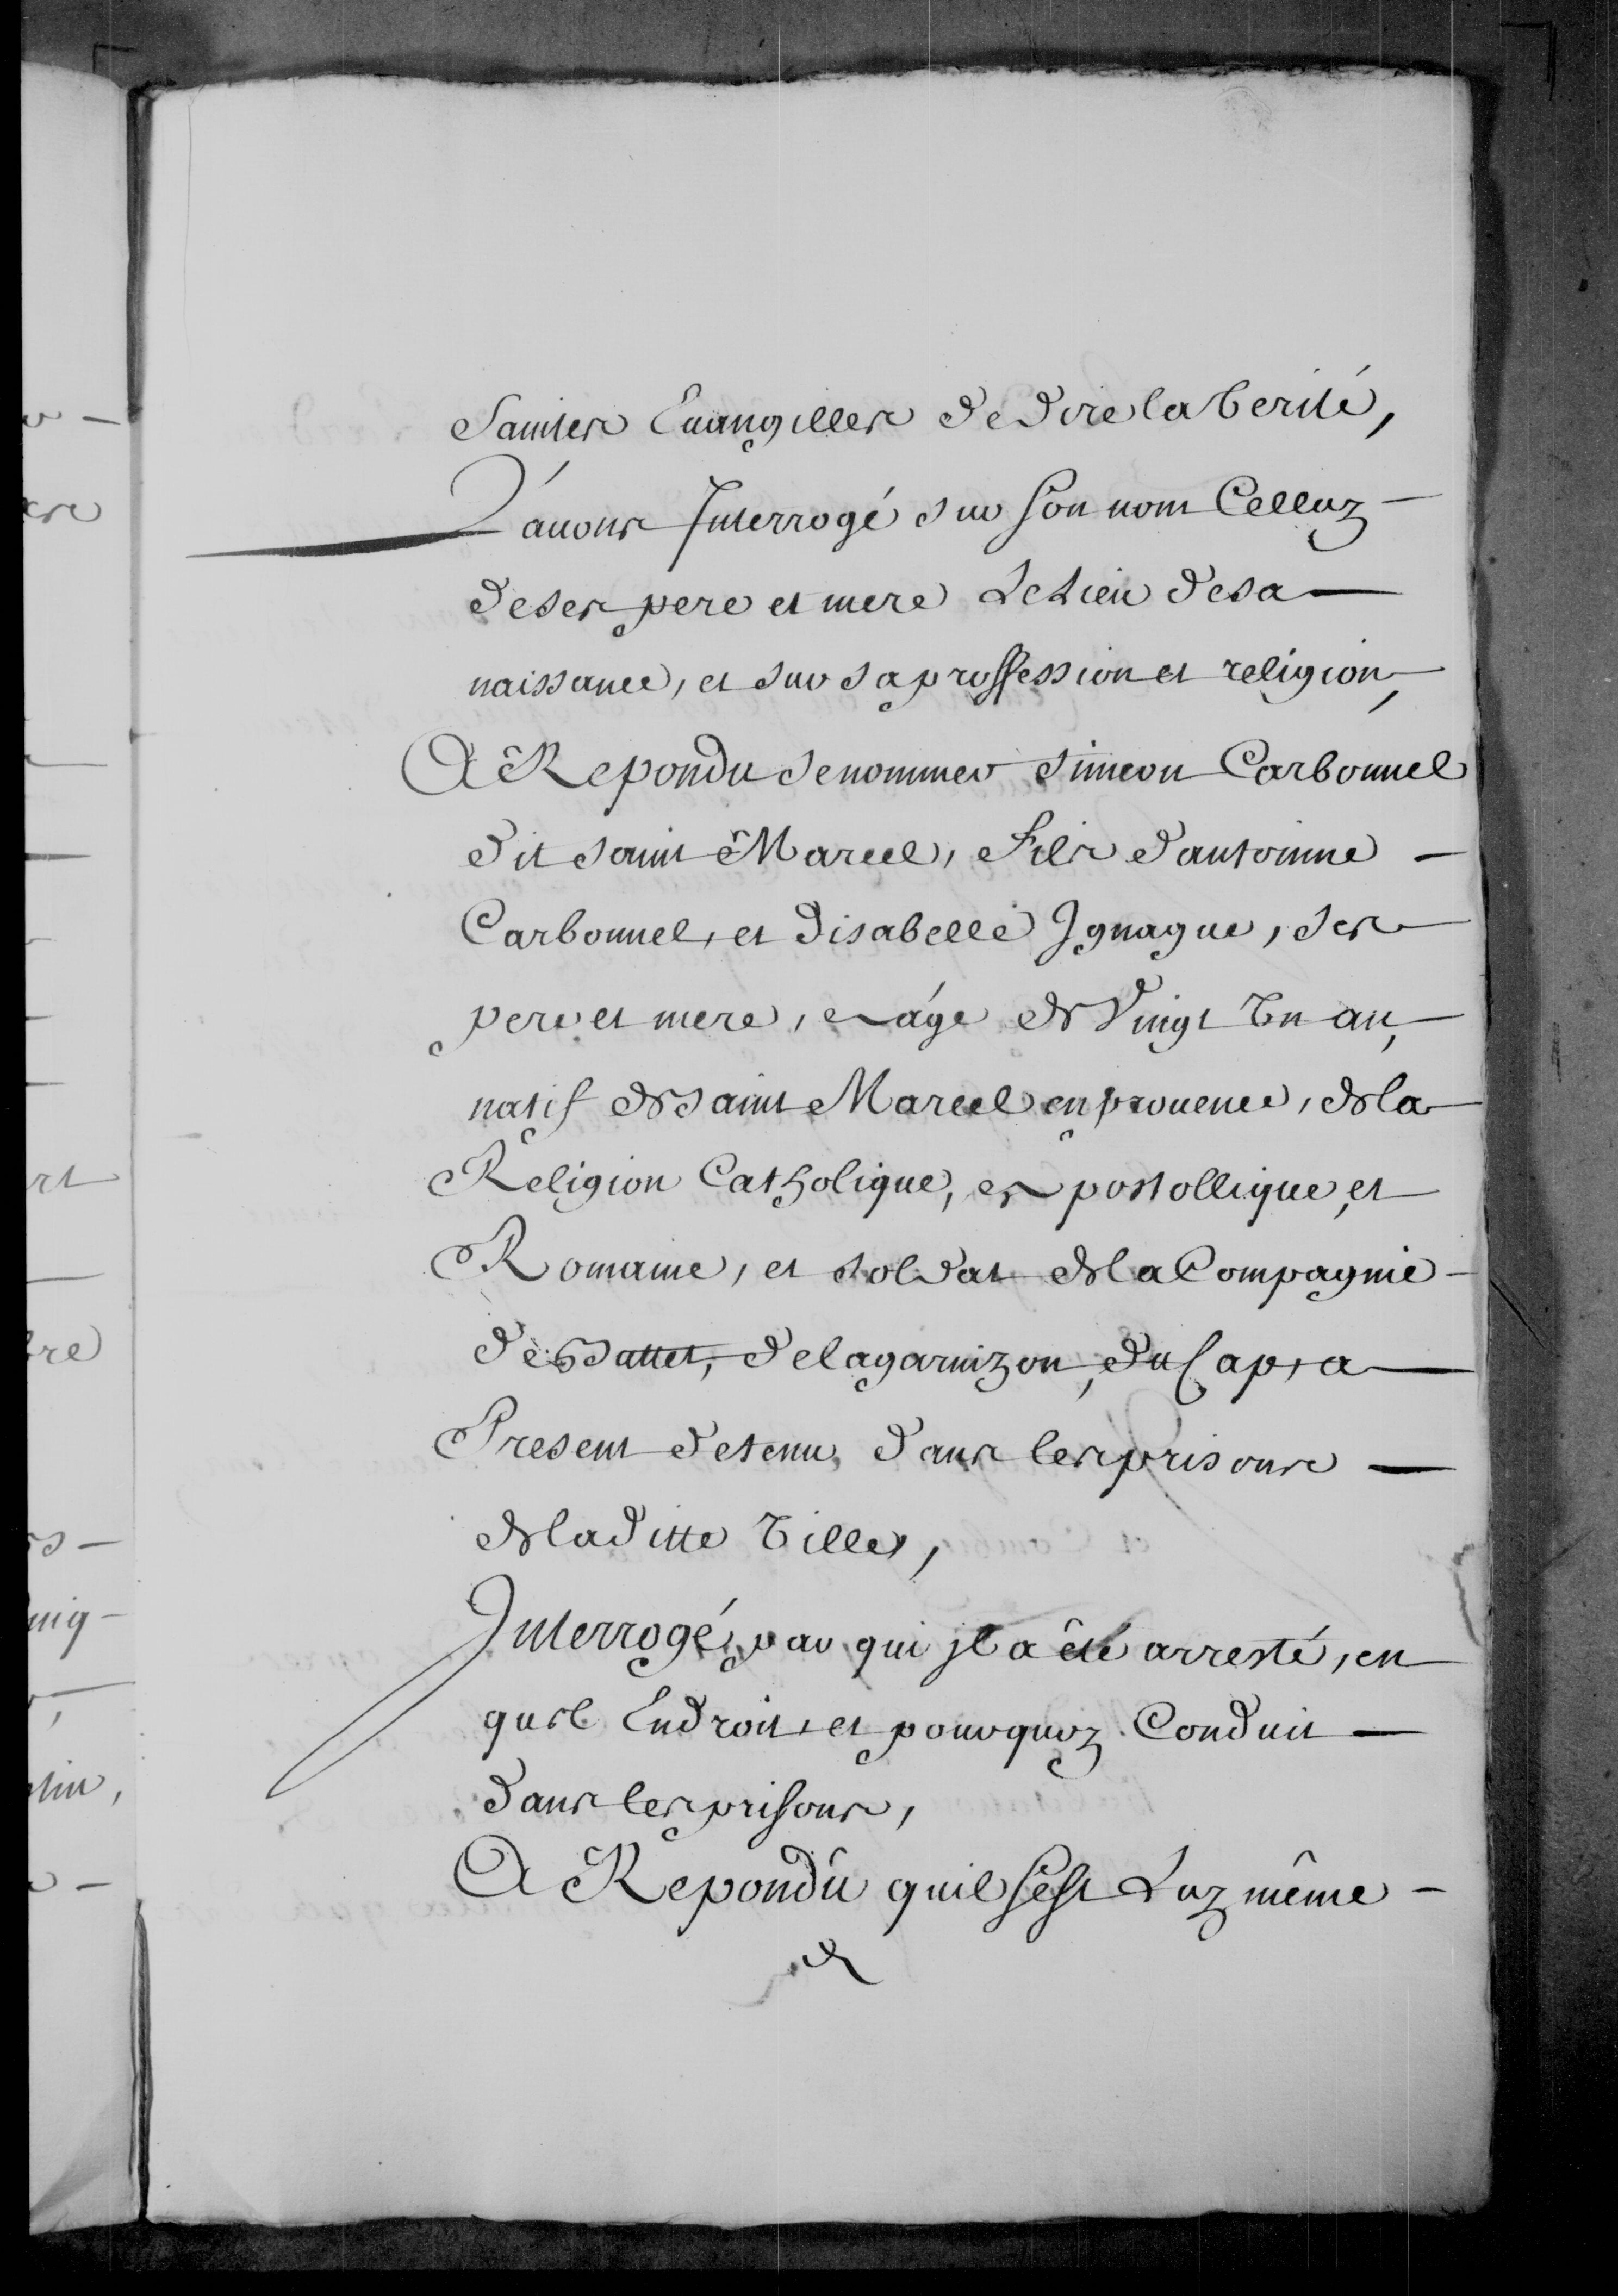 Saintes Euangilles de dire la Verité,
L'auons Interrogé sur son nom Celluy
de ses pere et mere Le Lieu de sa
naissance, et sur sa proffession et religion,
A Repondu se nommer Simeon Carbonnel
dit saint Marcel, Fils d'antoinne
Carbonnel, et d'isabelle Ignague, ses
pere et mere, agé de Vingt Un an,
natif de saint Marcel en prouence, de la
Religion Catholique, apostollique, et
Romaine, et soldat de la Compagnie
de, de la garnizon, du Cap, a
Present detenu, dans les prisons
de la ditte Ville,
Interrogé, par qui jl a êté arresté, en
quel Endroit, et pourquoy Conduit
dans les prisons,
A Repondû quil s'est Luy même